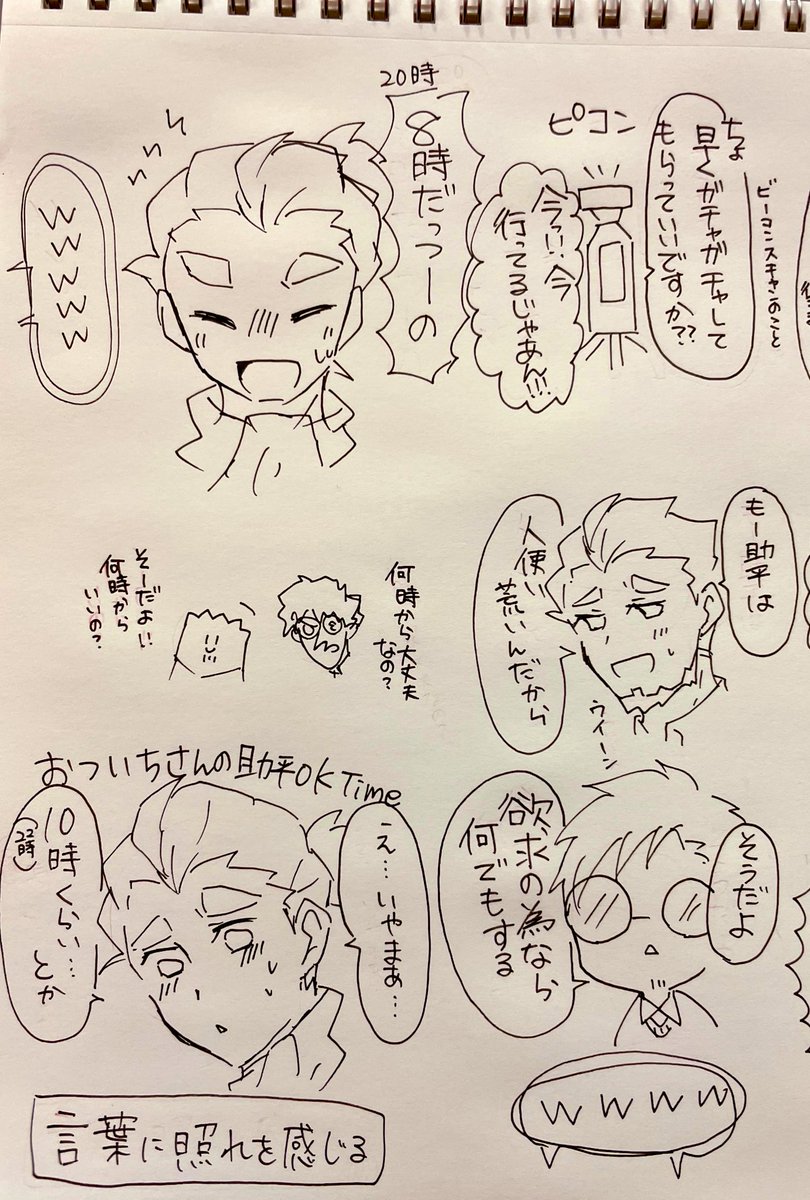 ちょ
早くガチャガチャして
もらっていいですか??
ビーコンスキャンのこと
ピコン
今っ!!今
行ってるじゃあん!!!
20時
8時だっつーの
wwwww
もー助平は
人使い
荒いんだから
ウィーン
何時から大丈夫
なの?
そーだよ!!
何時から
いいの?
そうだよ
欲求の為なら
何でもする
wwww
おついちさんの助平OKTime
え…いやまぁ…
10時くらい…
(22時)
とか
言葉に照れを感じる